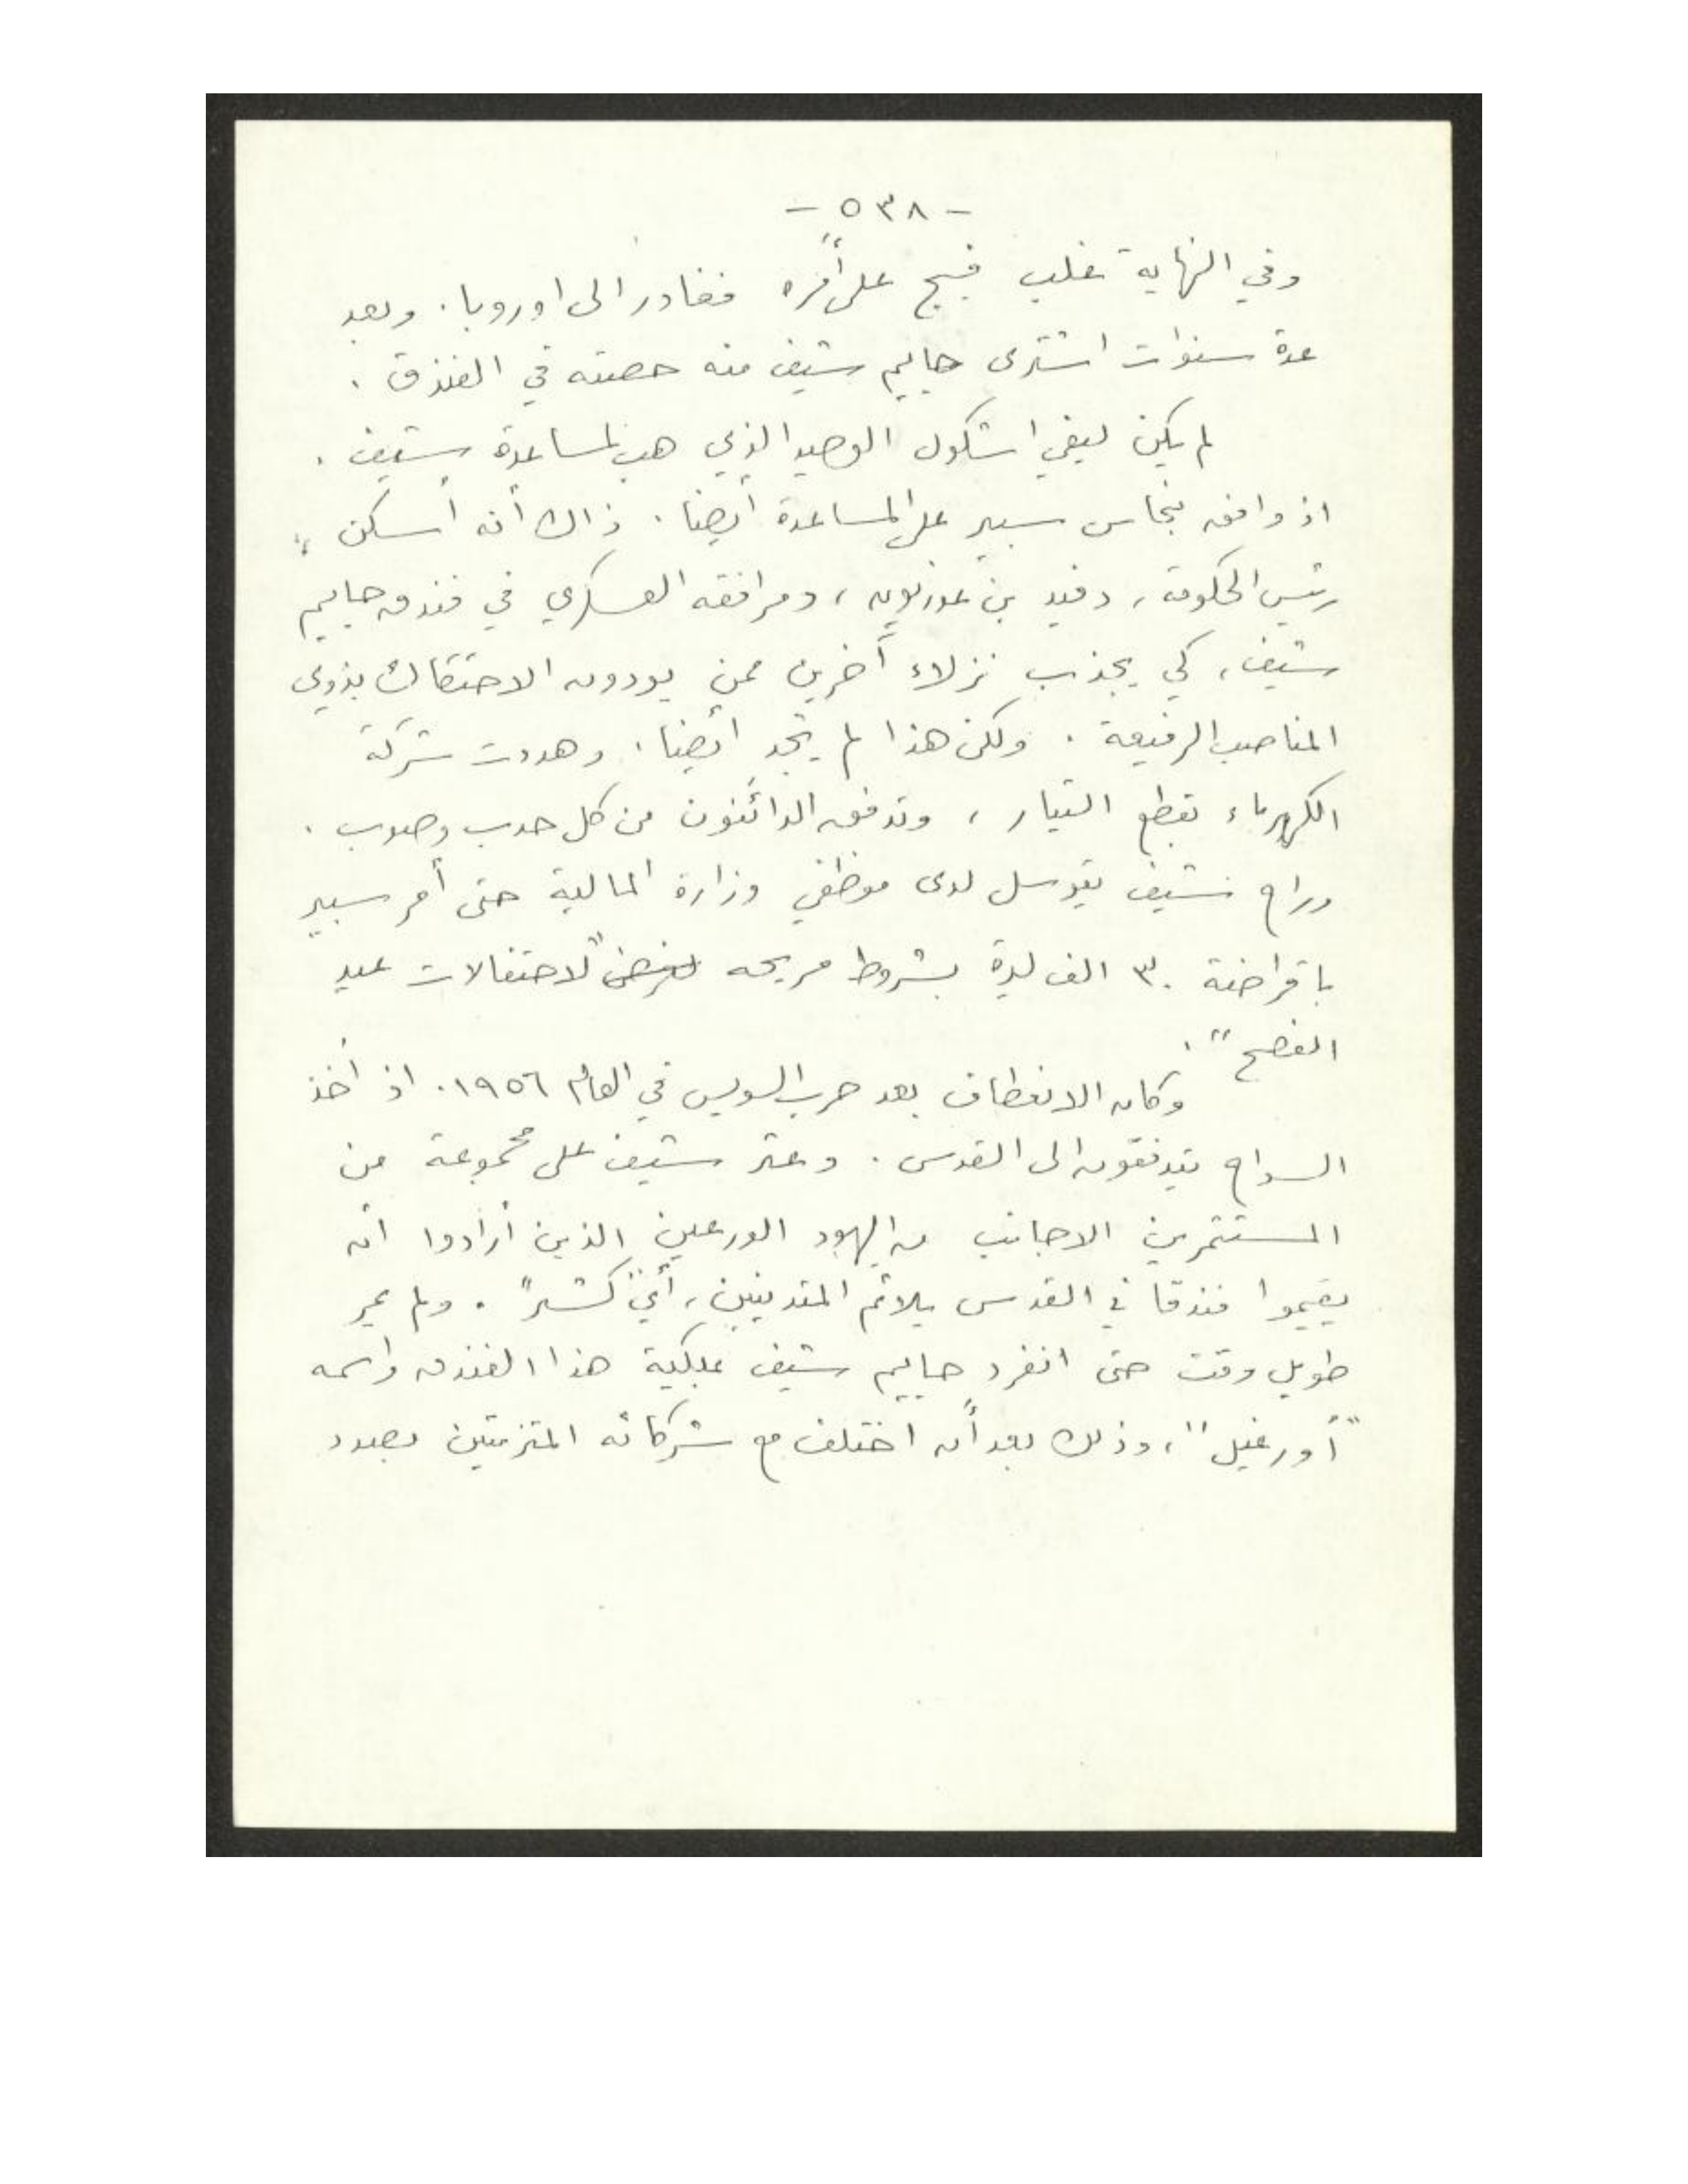 - ٥٣٨ -
وفي النهاية غلب فيبج على أمره فغادر الى اوروبا. وبعد
عدة سنوات اشترى حاييم شيف منه حصته في الفندق.
لم يكن ليفي اشكول الوحيد الذي هب لمساعدة شيف.
اذ وافق بنحاس سبير على المساعدة أيضا. ذاك أنه أسكن
رئيس الحكومة، دفيد بن غوريون، ومرافقه العسكري في فندق حاييم
شيف، كي يجذب نزلاء آخرين ممن يودون الاحتكاك بذوي
المناصب الرفيعة. ولكن هذا لم يجد أيضا. وهددت شركة
الكهرباء بقطع التيار، وتدفق الدائنون من كل حدب وصوب.
وراح شيف يتوسل لدى موظفي وزارة المالية حتى أمر سبير
باقراضه ٣٠ الف ليرة بشروط مريحه "لاحتفالات عيد
الفصح".
وكان الانعطاف بعد حرب السويس في العام ١٩٥٦. اذ أخذ
السواح يتدفقون الى القدس. وعثر شيف على مجموعة من
المستثمرين الاجانب من اليهود الورعين الذين أرادوا ان
يقيموا فندقا في القدس يلائم المتدينين، أي "كشير". ولم يمر
طويل وقت حتى انفرد حاييم شيف بملكية هذا الفندق واسمه
"أورغيل"، وذلك بعد أن اختلف مع شركائه المتزمتين بصدد